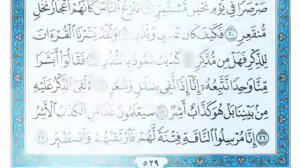 صَرْصَرًا فِي يَوْمِ نَحْسٍ مُّسْتَمِرٍّ ١٩ تَنزِعُ ٱلنَّاسَ كَأَنَّهُمْ أَعْجَازُ نَخْلٍ
مُّنقَعِرٍ ٢٠ فَكَيْفَ كَانَ عَذَابِي وَنُذُرِ ٢١ وَلَقَدْ يَسَّرْنَا ٱلْقُرْءَانَ
لِلذِّكْرِ فَهَلْ مِن مُّدَّكِرٍ ٢٢ كَذَّبَتْ ثَمُودُ بِٱلنُّذُرِ ٢٣ فَقَالُوٓاْ أَبَشَرًا
مِّنَّا وَٰحِدًا نَّتَّبِعُهُۥٓ إِنَّآ إِذًا لَّفِي ضَلَٰلٍ وَسُعُرٍ ٢٤ أَءُلْقِيَ ٱلذِّكْرُ عَلَيْهِ
مِنۢ بَيْنِنَا بَلْ هُوَ كَذَّابٌ أَشِرٌ ٢٥ سَيَعْلَمُونَ غَدًا مَّنِ ٱلْكَذَّابُ ٱلْأَشِرُ
٢٦ إِنَّا مُرْسِلُواْ ٱلنَّاقَةِ فِتْنَةً لَّهُمْ فَٱرْتَقِبْهُمْ وَٱصْطَبِرْ ٢٧
٥٢٩